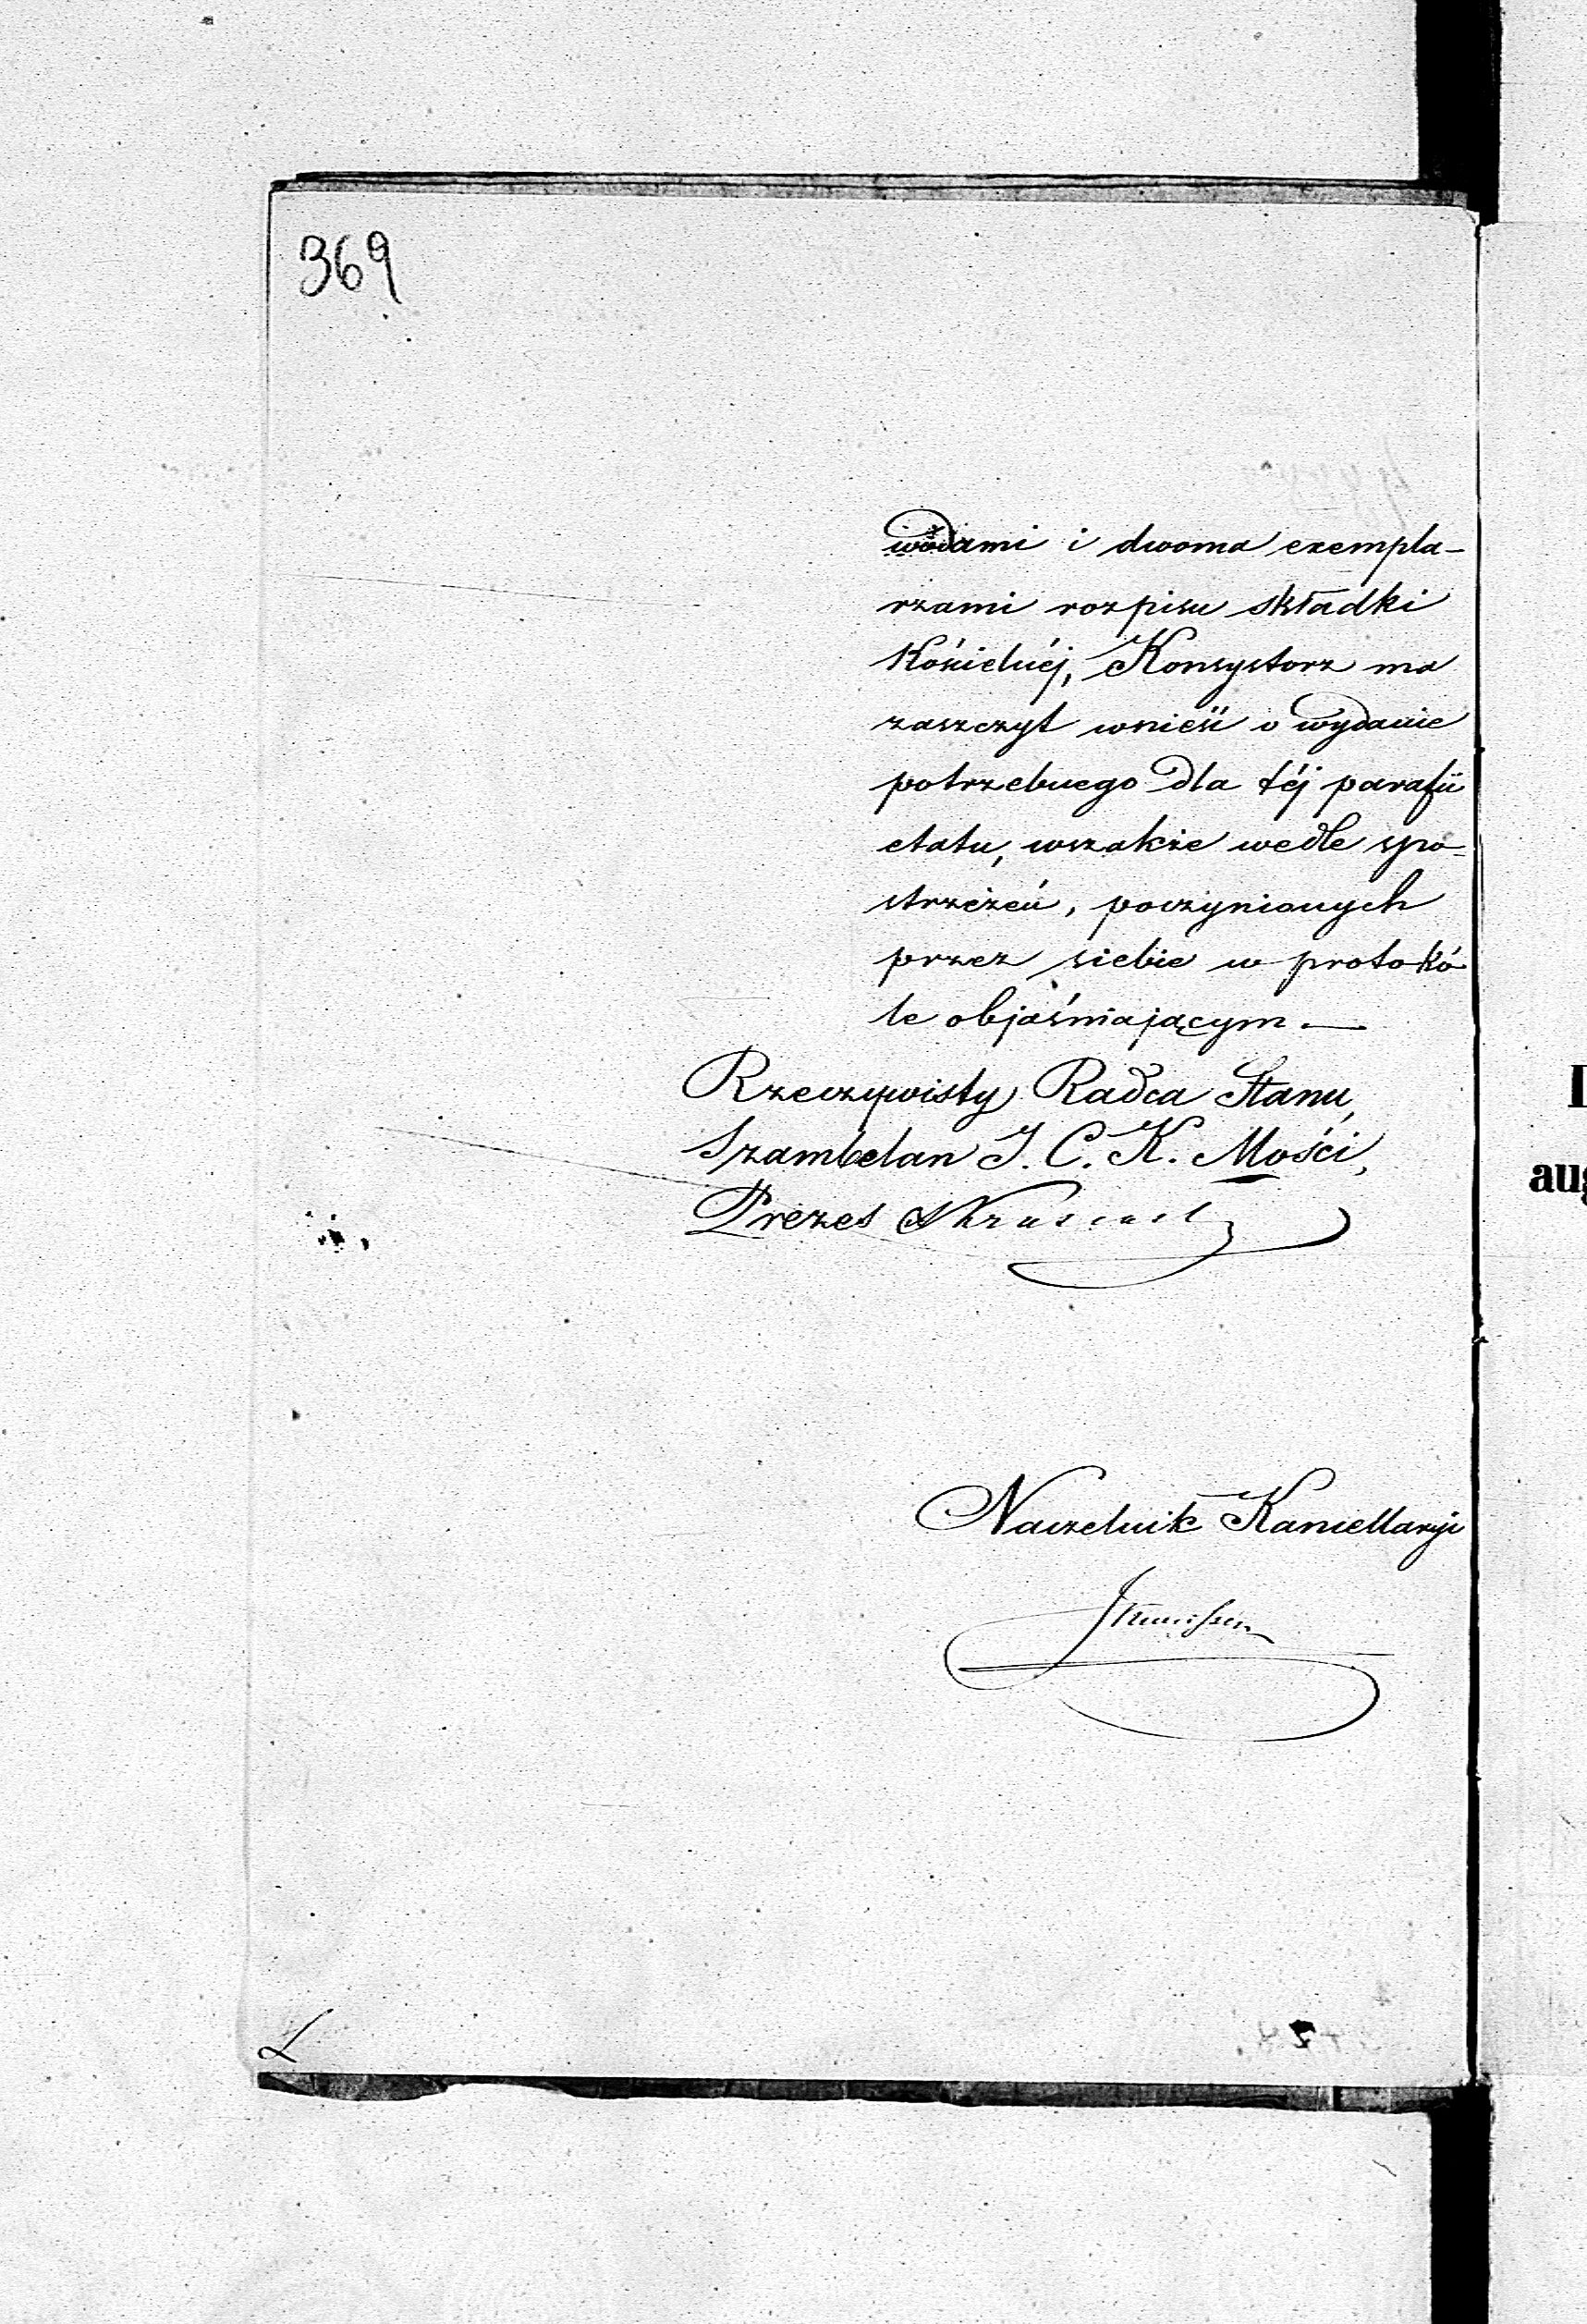 369
wodami i dwoma exempla-
rzami rozpisu składki
Kościelnéj, Konsystorz ma
zaszczyt wnieść o wydanie
potrzebnego dla téj parafii
etatu, wszakże wedle spo-
strzeżeń, poczynionych
przez siebie w protokó
le objaśniającym.—
Rzeczywisty Radca Stanu,
Szambelan J. C. K. Mości,
Prezes
Naczelnik Kancellaryi